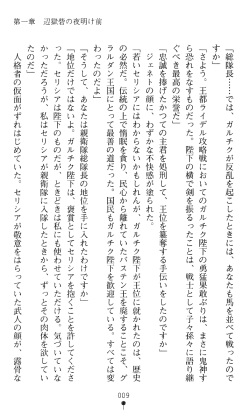 第一章　辺獄砦の夜明け前
「総隊長……では、ガルチクが反乱を起こしたときには、あなたも馬を並べて戦ったので
すか」
「さよう。王都ライデル攻略戦においてのガルチク陛下の勇猛果敢ぶりは、まさに鬼神す
ら怯えるものだった。陛下の横で剣を振るったことは、戦士として子々孫々に語り継
ぐべき最高の栄誉だ」
ジェネトの顔に、わずかな不快感が塗られた。
「忠誠を捧げたかつての主君を裏切り、王位を簒奪する手伝いをしたのですか」
「若いセリシアにはわからんかもしれんが、ガルチク陛下が王位に就かれたのは、歴史
の必然だ。伝統の上で惰眠を貪り、民心から離れていたバステン王を廃することこそ、グ
ラルダン王国にとって最善の道だった。国民もガルチク陛下を歓迎している。すべては変
わったのだよ」
「そうして、あなたは親衛隊総隊長の地位を手に入れたわけですか」
「地位だけではない。ガルチク陛下は、褒賞としてセリシアを抱くことを許してくださ
った。セリシアは陛下のものだが、ときどきは私にも使わせていただける。気づいていな
かっただろうが、私はセリシアが親衛隊に入隊したときから、ずっとその肉体を欲してい
たのだ」
人格者の仮面がずれはじめていた。セリシアが敬意をはらっていた武人の顔が、露骨な
009